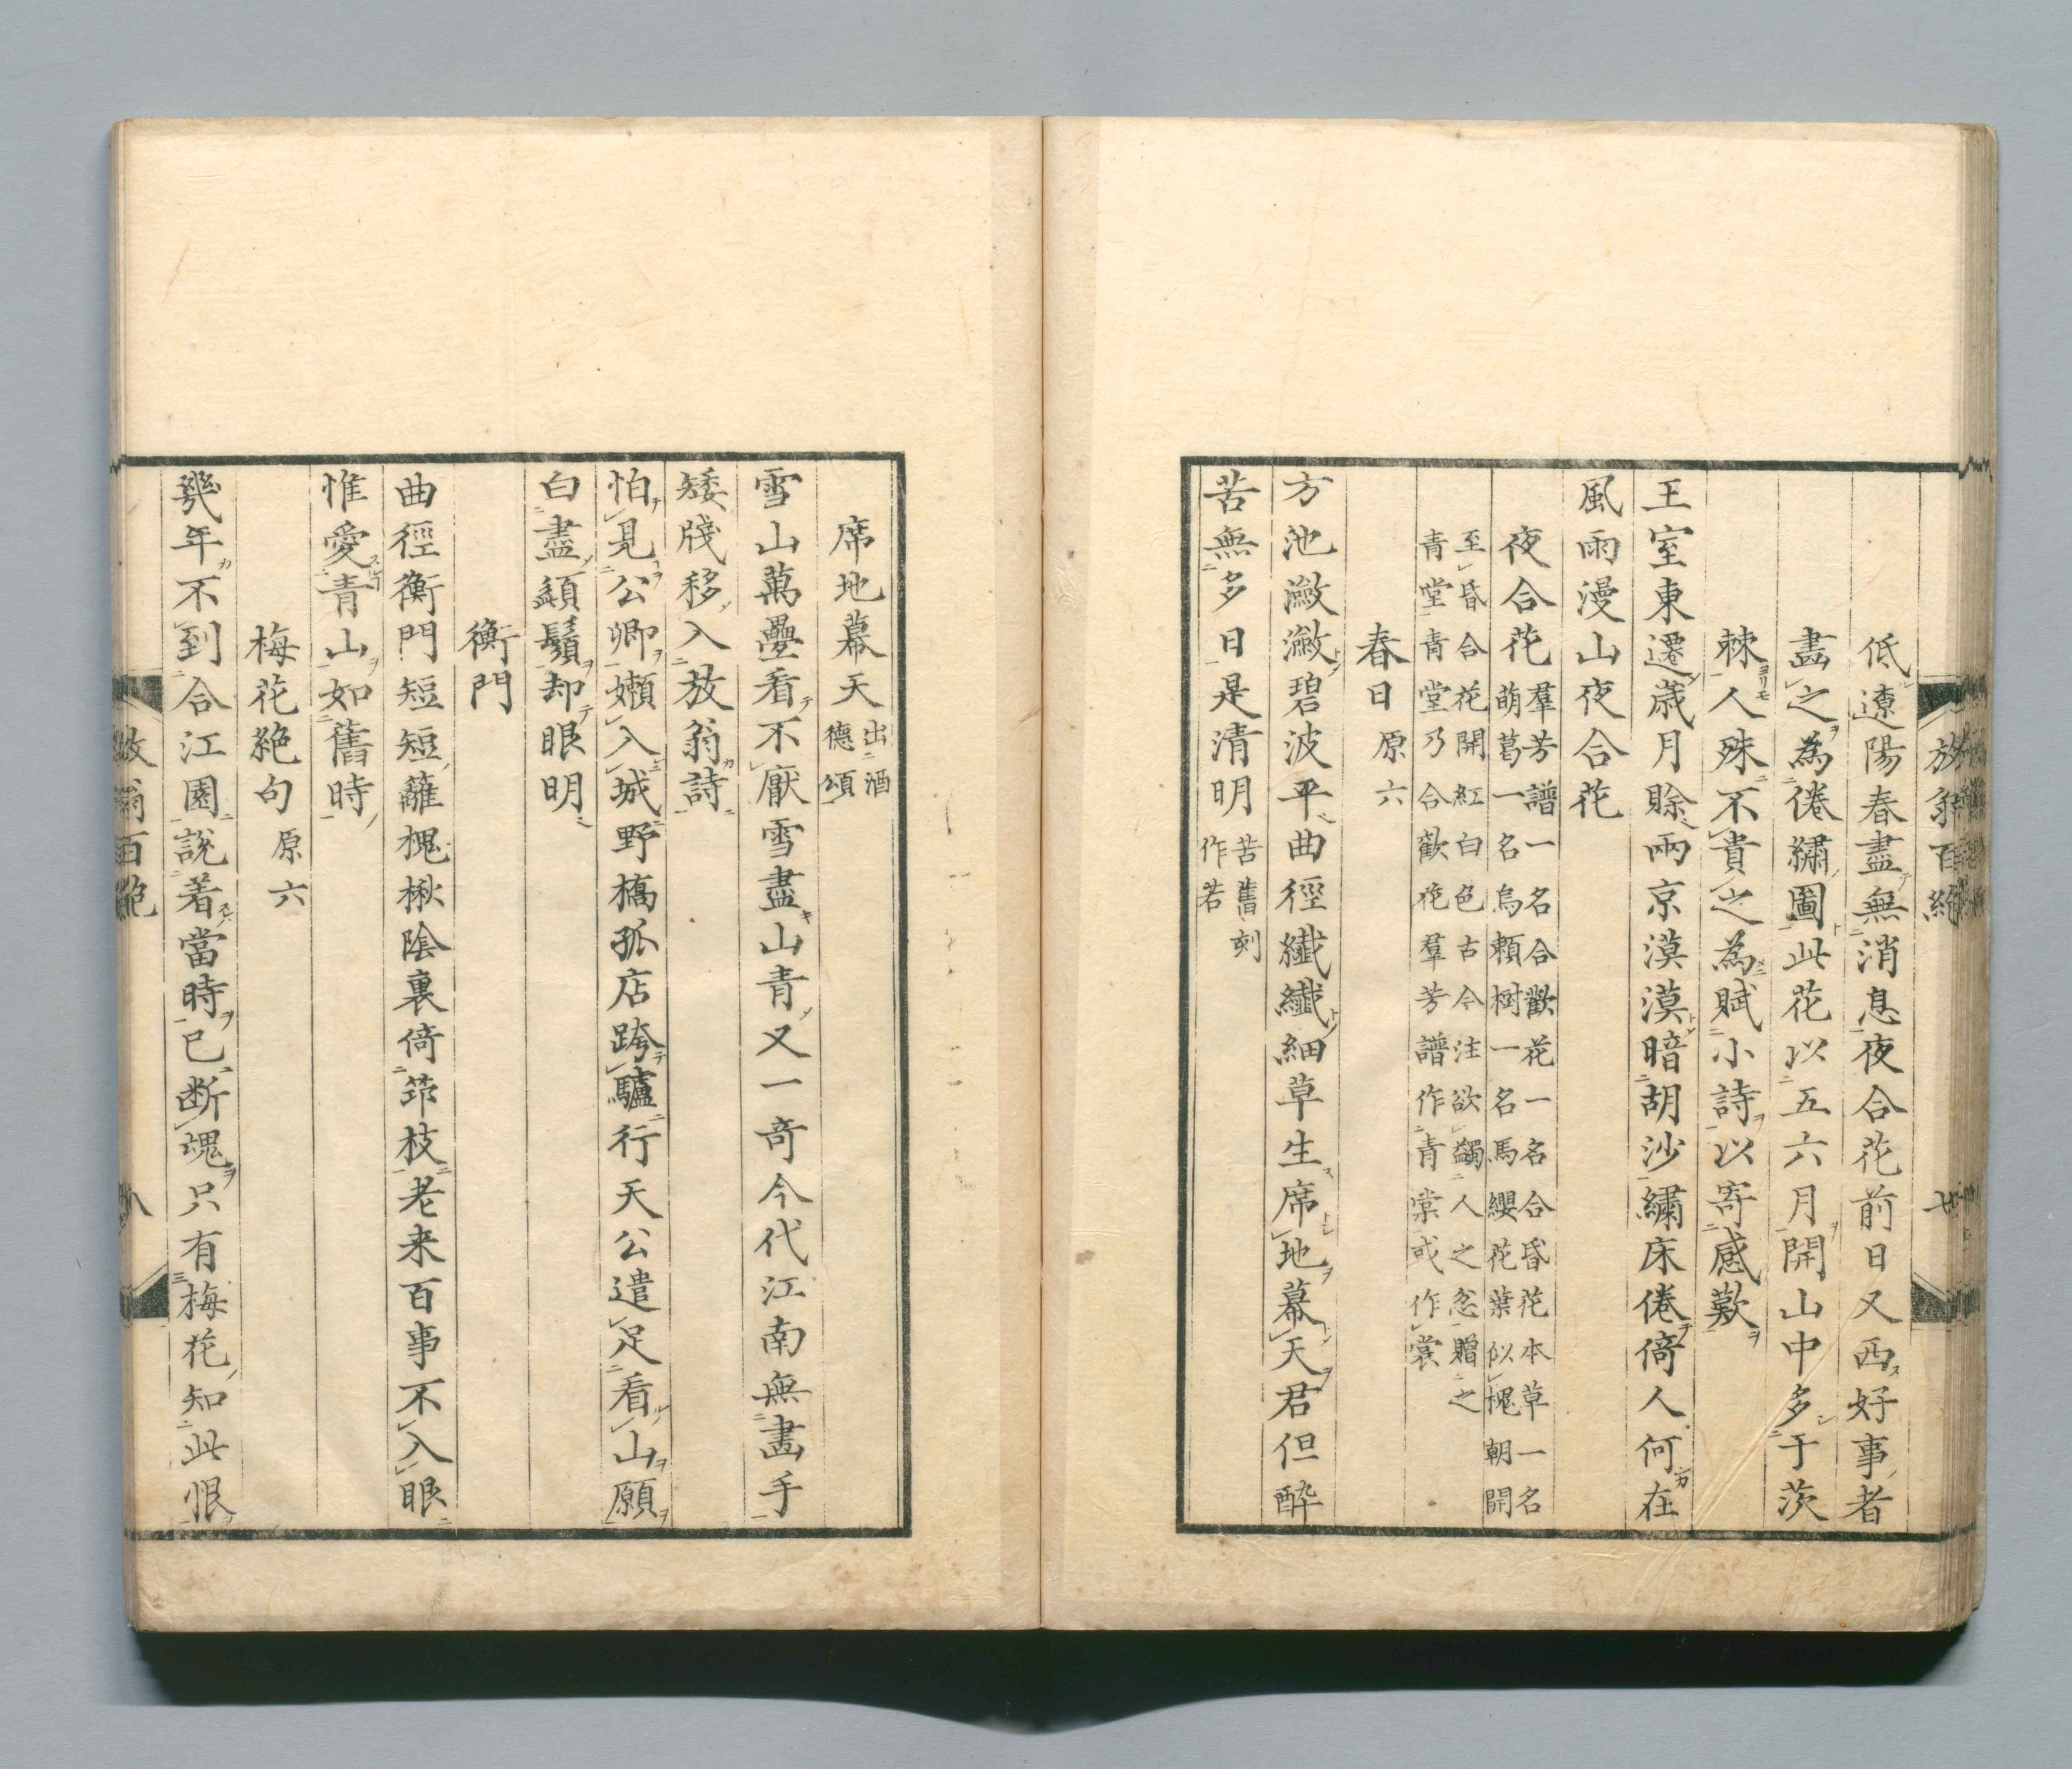 放翁百絶
七
低遼陽春盡無消息夜合花前日又西好事者
畫之為倦繡圖此花以五六月開山中多于茨
棘人殊不貴之為賦小詩以寄感歎
王室東遷歳月賒兩京漠漠暗胡沙繡床倦倚人何在
風雨漫山夜合花
夜合花羣芳譜一名合歡花一名合昏花本草一名
萌葛一名烏頼樹一名馬纓花葉似槐朝開
至昏合花開紅白色古今注欲蠲人之忿贈之
青堂青堂乃合歡花羣芳譜作青棠或作裳
春日原六
方池瀲瀲碧波平曲徑纖纖細草生席地幕天君但醉
苦無多日是清明苦舊刻
作若
席地幕天出酒
德頌
雪山萬疊看不厭雪盡山青又一奇今代江南無畫手
矮牋移入放翁詩
怕見公卿嬾入城野橋孤店跨驢行天公遣足看山願
白盡鬚鬢却眼明
衡門
曲徑衡門短短籬槐楸陰裏倚筇枝老来百事不入眼
惟愛青山如舊時
梅花絶句原六
幾年不到合江園説着當時已断魂只有梅花知此恨
放翁百絶
八